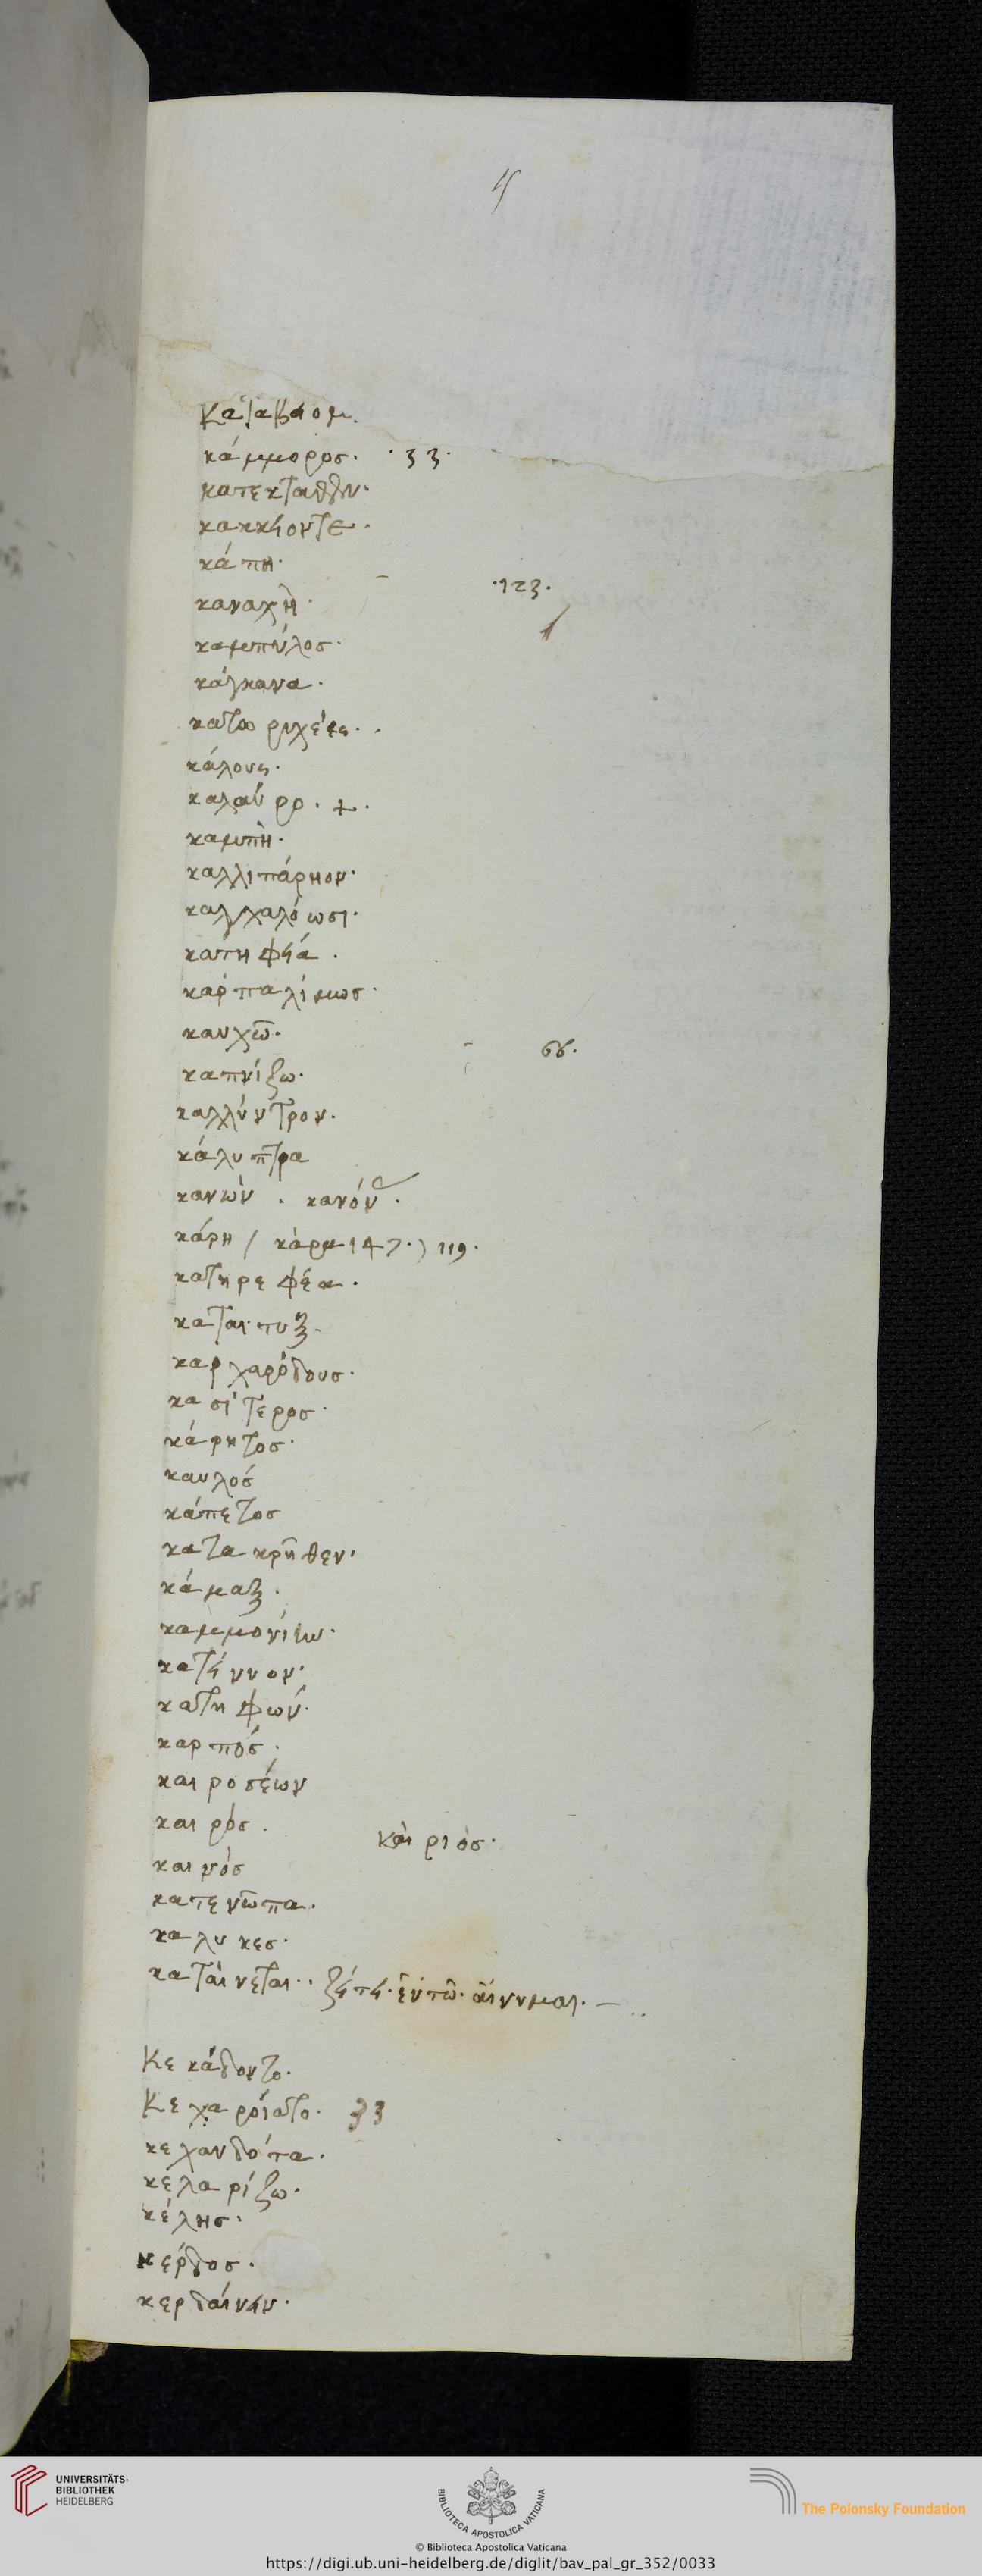 κάμμορος. ·33·
κακκείοντε·
κάπη·
·123·
καναχὴ·
καμπύλος·
κάγκανα·
κάλους·
καλαύρο. +.
καμπὴ·
καλλιπάρηον·
καγχαλόωσι·
κατηφέα.
καρπαλίμως·
καυχῶ·
66.
καπνίζω·
καλλύντρον.
κάλυπτρα
κανὼν . κανόν.
κάρη / κάρη 147.) 119.
κατηρεφέα.
καταιτυξ.
καρχαρόδους·
κασίτερος·
κάρητος·
καυλός
κάπετος
κατα κρῆθεν·
κάμαξ.
καμμονίην·
κατείνυον·
κατηφών·
καρπός.
καιροσέων
καιρός.
καίριος·
καινός
κατενῶπα.
καλυκες·
καταίνεται·· ζήτει· ἐν τῶ· αἴνυμαι. —
Κεκάδοντο.
Κεχαροίατο· 33
κεχανδότα.
κελαρίζω·
κέλης·
κέρδος.
κερδαίνειν·
UNIVERSITÄTS-
BIBLIOTHEK
HEIDELBERG
BIBLIOTECA APOSTOLICA VATICANA
The Polonsky Foundation
© Biblioteca Apostolica Vaticana
https://digi.ub.uni-heidelberg.de/diglit/bav_pal_gr_352/0033